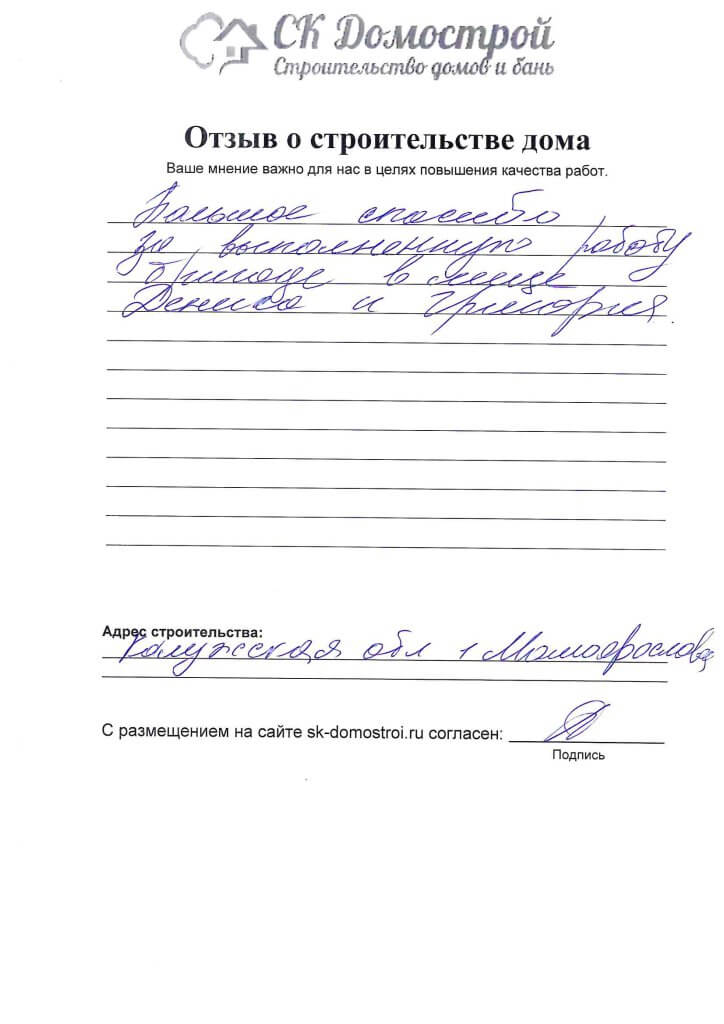 СК Домострой
Строительство домов и бань
Отзыв о строительстве дома
Ваше мнение важно для нас в целях повышения качества работ.
Большое спасибо
за выполненную работу
бригаде в лице
Дениса и Григория.
Адрес строительства:
Калужская обл г Малоярославец
С размещением на сайте sk-domostroi.ru согласен:
Подпись